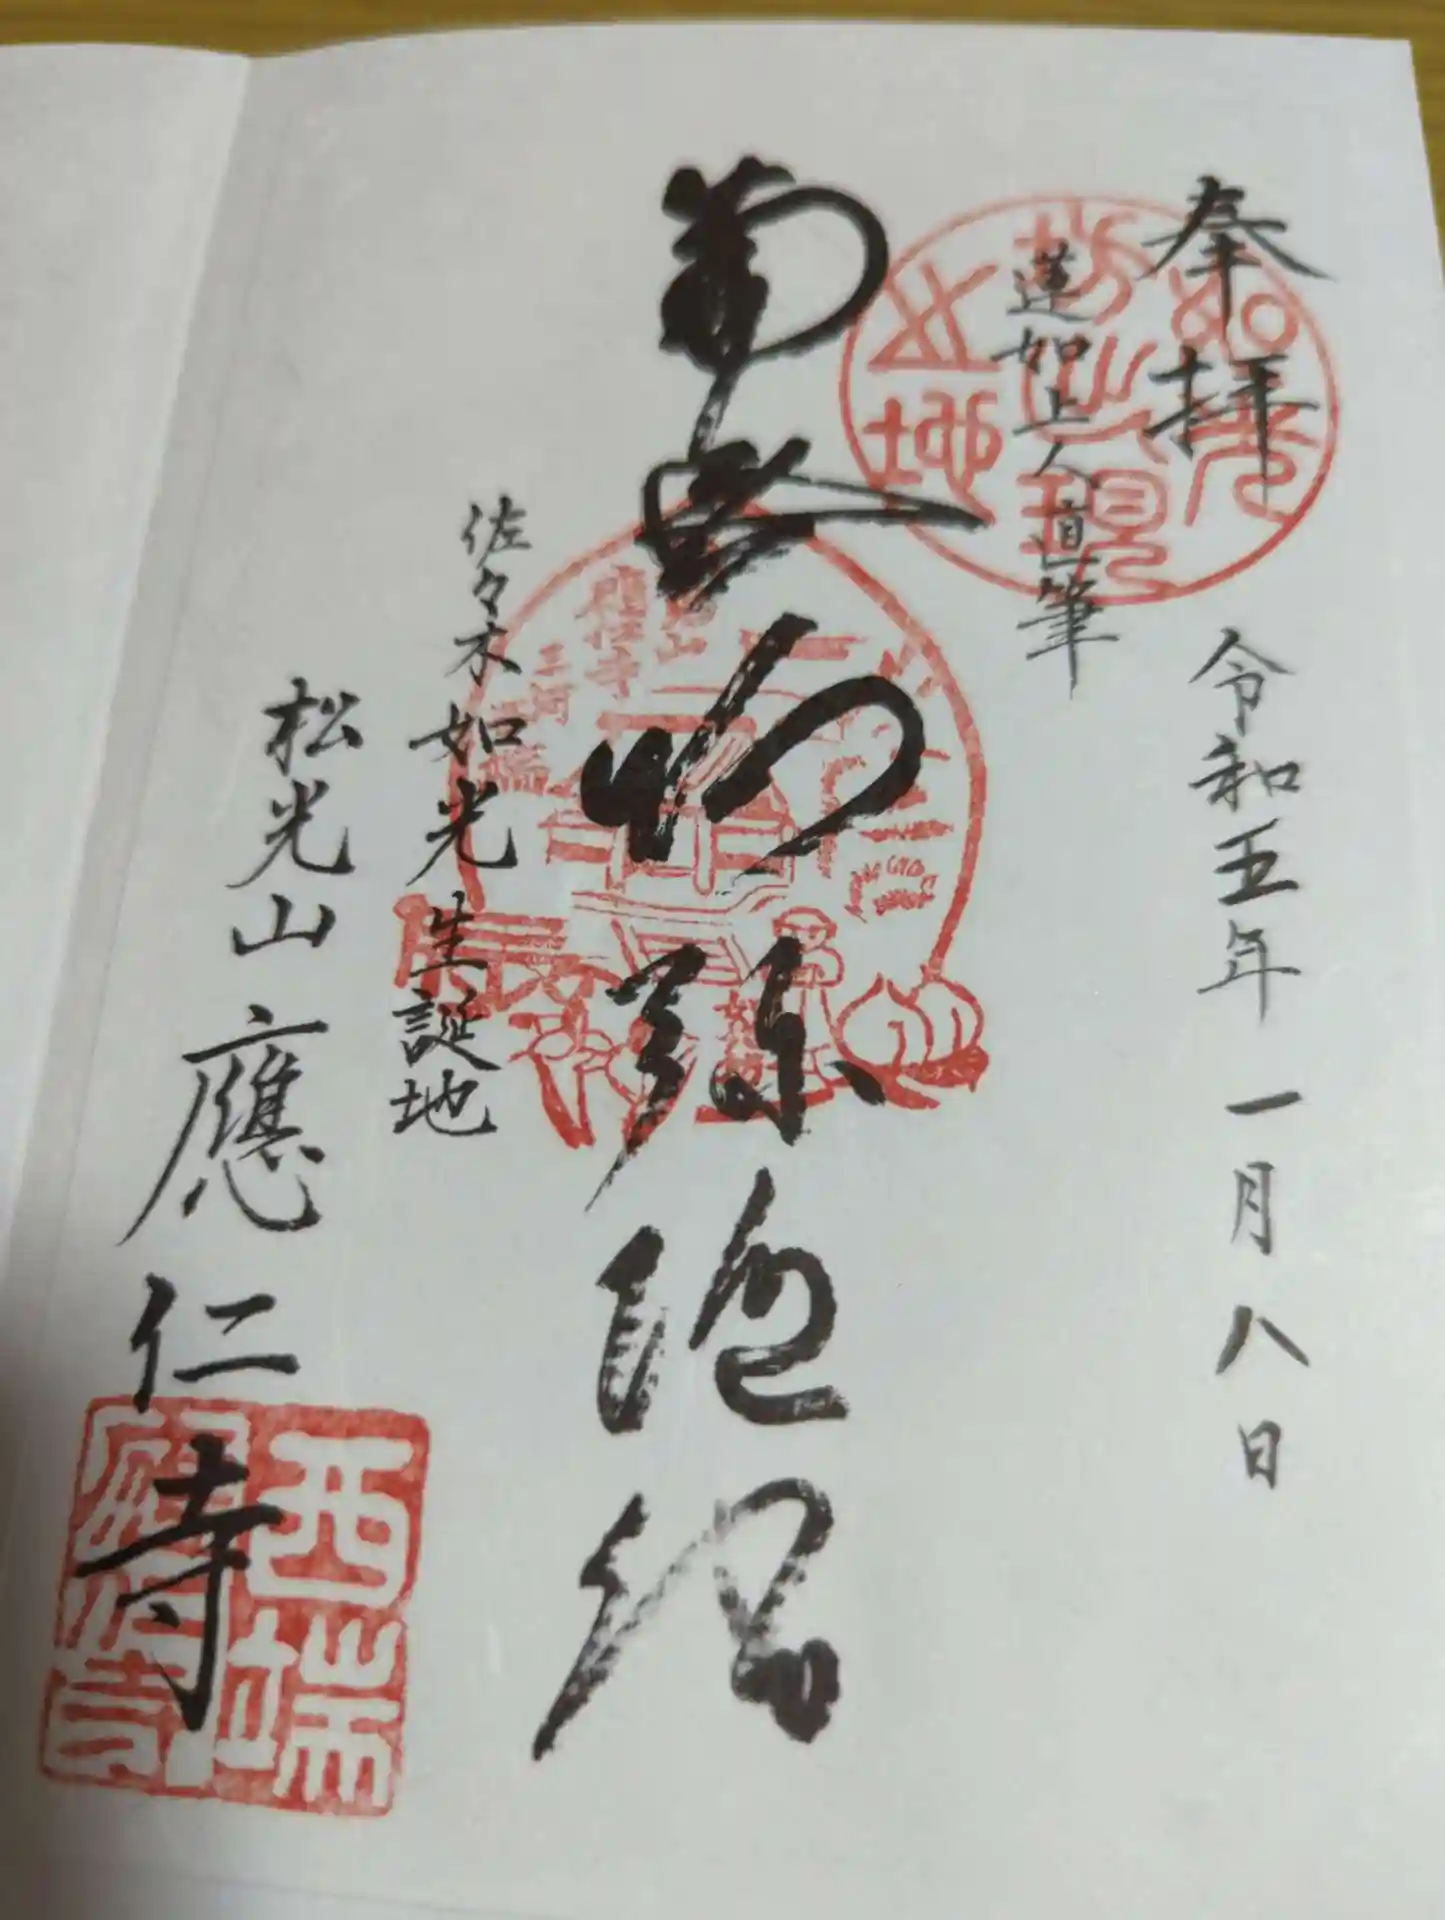 奉拝
令和五年 一月八日
蓮如上人直筆
南無阿弥陀仏
佐々木如光 生誕地
松光山 應仁寺
三河
西端
應仁寺